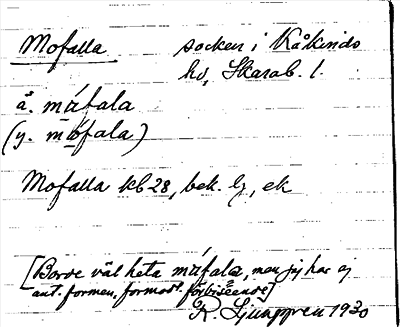 Mofalla socken i Kåkinds
hd, Skarab. l.
å. múfala
(y. mófala)
Mofalla kb 28, bek. lj, ek
[Borde väl heta múfala, men jag har ej
ant. formen, förmodl. förbiseende]
R. Ljunggren 1930